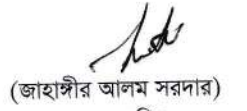 (জাহাঙ্গীর আলম সরদার)